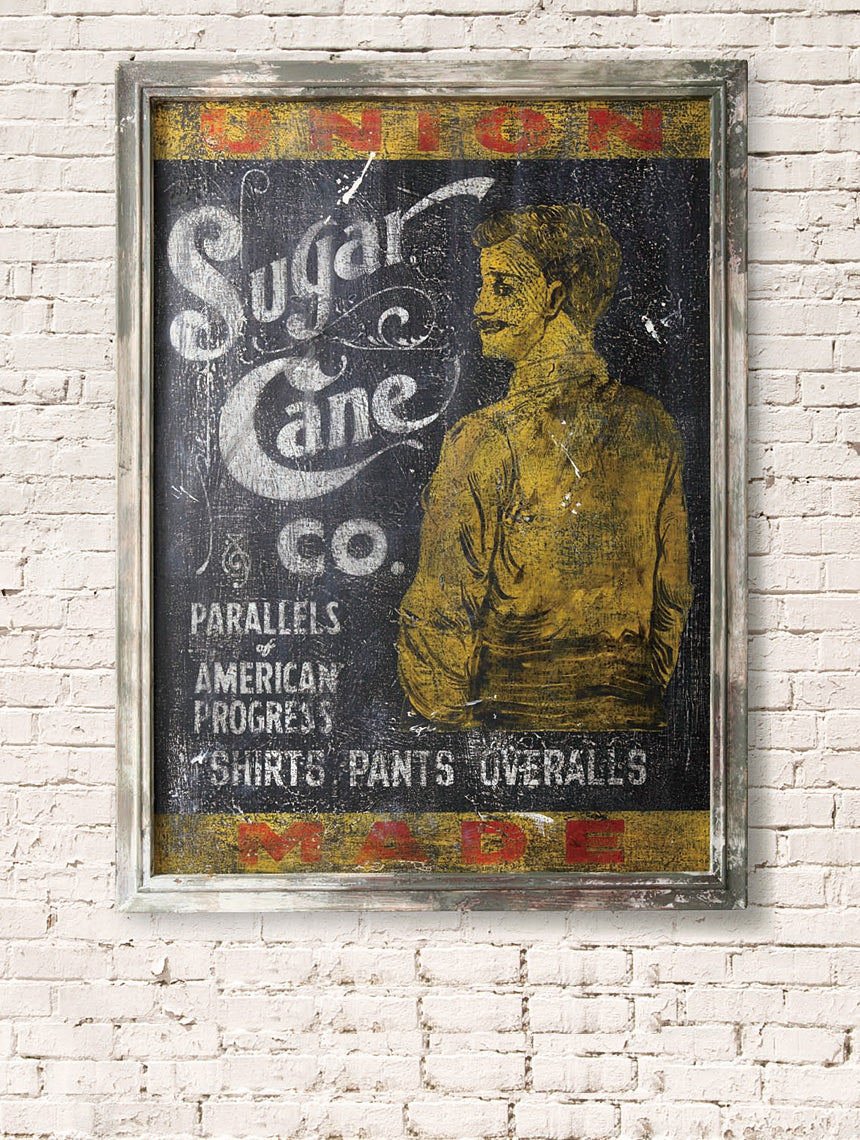 UNION
Sugar
Cane
CO.
PARALLELS
of
AMERICAN
PROGRESS
SHIRTS PANTS OVERALLS
MADE